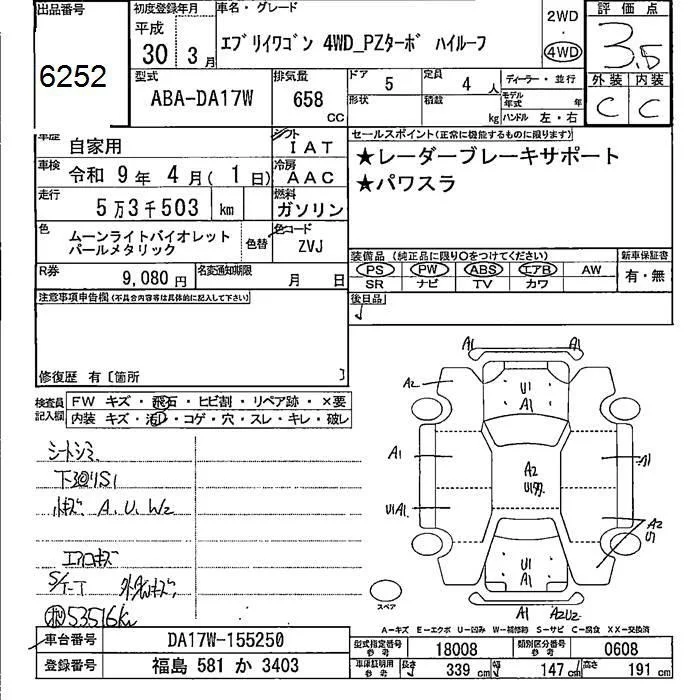 出品番号
6252
初度登録年月
平成
30 3月
車名・グレード
エブリイワゴン 4WD_PZターボ ハイルーフ
2WD
・
4WD
評価点
3.5
外装 内装
C C
型式
ABA-DA17W
排気量
658
CC
ドア 5
定員 4人
形状
積載 kg
ディーラー・並行
モデル年式 年
ハンドル 左・右
車歴 自家用
シフト IAT
車検 令和 9年 4月( 1日)
冷房 AAC
走行 5万3千503 km
燃料 ガソリン
色 ムーンライトバイオレット
パールメタリック
色替
色コード ZVJ
R券 9,080円
名変通知期限 月 日
セールスポイント(正常に機能するものに限ります)
★レーダーブレーキサポート
★パワスラ
装備品(純正品に限り○をつけてください)
新車保証書
PS PW ABS エアB AW
SR ナビ TV カワ
有・無
後日品
注意事項申告欄(不具合内容等は具体的に記入して下さい)
修復歴 有〔箇所 〕
検査員記入欄
FW キズ・飛石・ヒビ割・リペア跡・×要
内装 キズ・汚れ・コゲ・穴・スレ・キレ・破し
シートシミ
下回りS1
小キズ A.U.W2
エアロキズ
53516km
A1 A1
A2
U1
A1
A1
A2
A1
U1A1
A2
U1
U1
A1
A1 A2U2
スペア
A-キズ E-エクボ U-凹み W-補修跡 S-サビ C-腐食 XX-交換済
車台番号 DA17W-155250
登録番号 福島 581 か 3403
型式指定番号 参考 18008
類別区分番号 参考 0608
車検証明用 参考
長さ 339 cm
幅 147 cm
高さ 191 cm